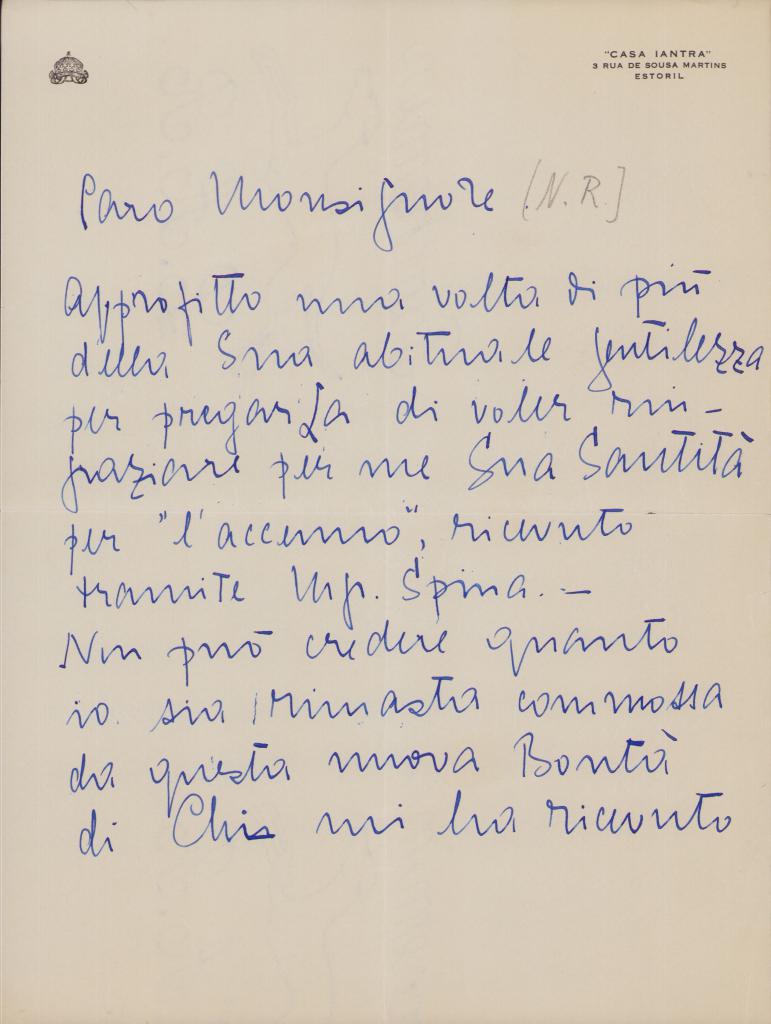 "CASA IANTRA"
3 RUA DE SOUSA MARTINS
ESTORIL
Caro Monsignore [N.R.]
Approfitto una volta di più
della Sua abituale gentilezza
per pregarLa di voler rin-
graziare per me Sua Santità
per "l'accenno", ricevuto
tramite Mgr. Spina. –
Non può credere quanto
io sia rimasta commossa
da questa nuova Bontà
di Chi mi ha ricevuto